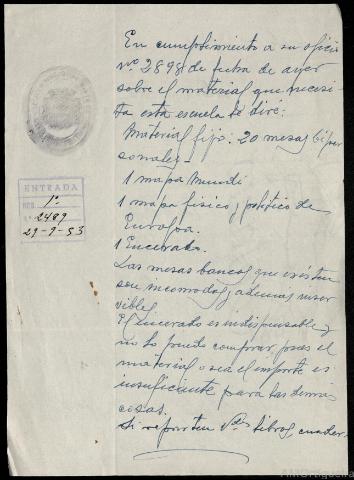 En cumplimiento a su oficio
nº 2898 de fecha de ayer
sobre el material que necesi-
ta esta escuela le diré:
Material fijo: 20 mesas biper
sonales—
1 mapa Mundi
1 mapa fisico y politico de
Europa.
1 Encerado.
Las mesas bancos que existen
son incomodas y ademas inser
vibles
El encerado es indispensable y
no lo puedo comprar pues el
material o sea el importe es
insuficiente para las demas
cosas.
Si reparten Vdes libros, cuader-
ENTRADA
REG. 1º
Nº 2489
29-9-53